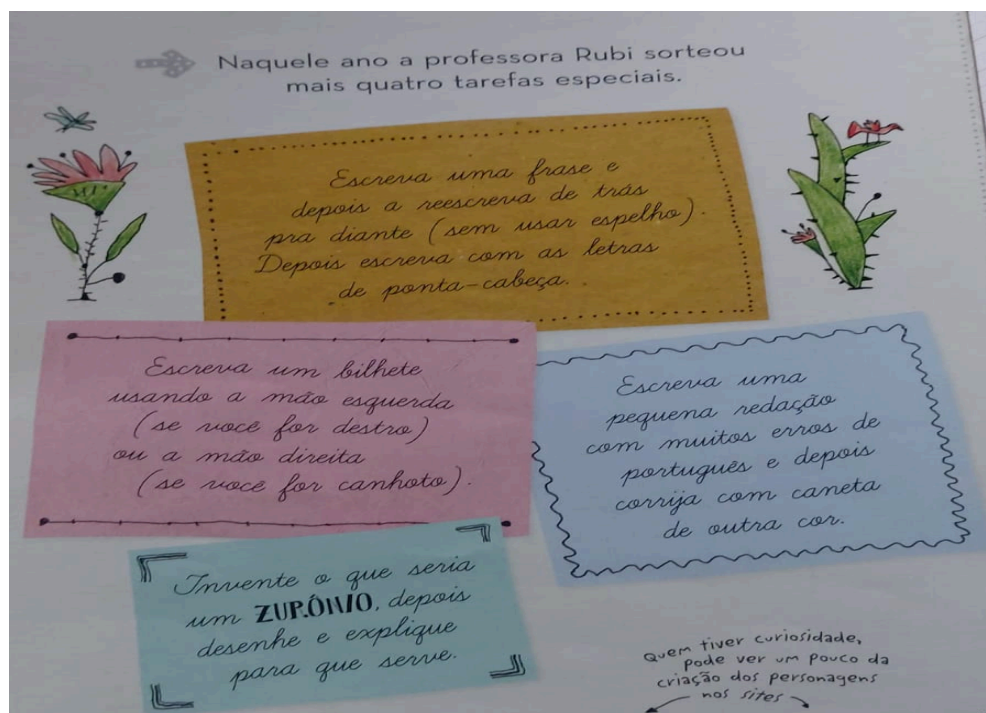 Naquele ano a professora Rubi sorteou
mais quatro tarefas especiais.
Escreva uma frase e
depois a reescreva de trás
pra diante (sem usar espelho).
Depois escreva com as letras
de ponta-cabeça.
Escreva um bilhete
usando a mão esquerda
(se você for destro)
ou a mão direita
(se você for canhoto).
Escreva uma
pequena redação
com muitos erros de
português e depois
corrija com caneta
de outra cor.
Invente o que seria
um ZURÔNIO, depois
desenhe e explique
para que serve.
Quem tiver curiosidade,
pode ver um pouco da
criação dos personagens
nos sites